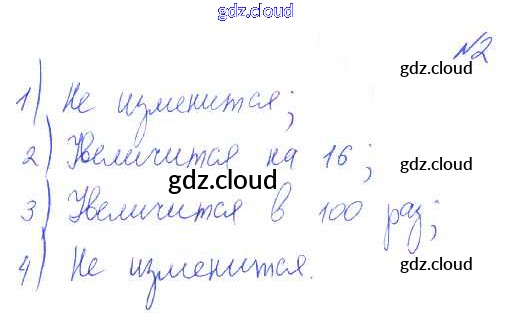 gdz.cloud
№2
gdz.cloud
1) Не изменится;
2) Увеличится на 16;
gdz.cloud
gdz.cloud
3) Увеличится в 100 раз;
4) Не изменится.
gdz.cloud